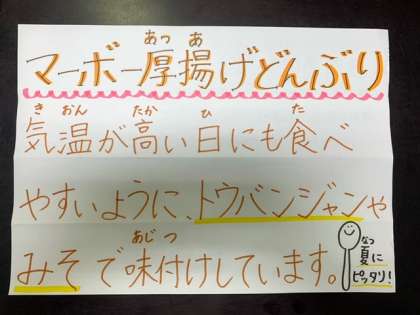 あつ あ
マーボー厚揚げどんぶり
き おん たか ひ た
気温が高い日にも食べ
やすいように、トウバンジャンや
あじ つ
みそで味付けしています。
なつ
夏に
ピッタリ!